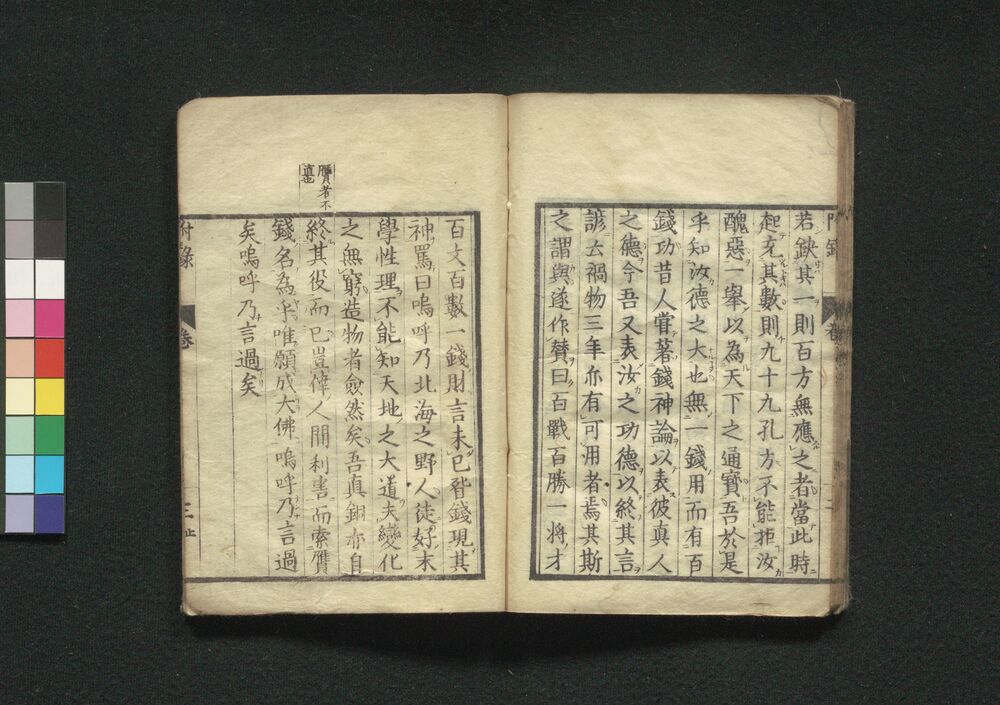 附録
卷
若缺其一則百方無應之者當此時
起充其數則九十九孔方不能拒汝
醜惡一舉以為天下之通寶吾於是
乎知汝德之大也無一錢用而有百
錢功昔人嘗著錢神論以表彼真人
之德今吾又表汝之功德以終其言
諺云禍物三年亦有可用者焉其斯
之謂與遂作贊曰百戰百勝一将才
百文百數一錢財言未已昏錢現其
神罵曰嗚呼乃北海之野人徒好末
學性理不能知天地之大道夫變化
之無窮造物者僉然矣吾真銅亦自
贗者不
真也
終其役而已豈偉人間利害而索贗
錢名為乎唯願成大佛嗚呼乃言過
矣嗚呼乃言過矣
附錄
卷
三止